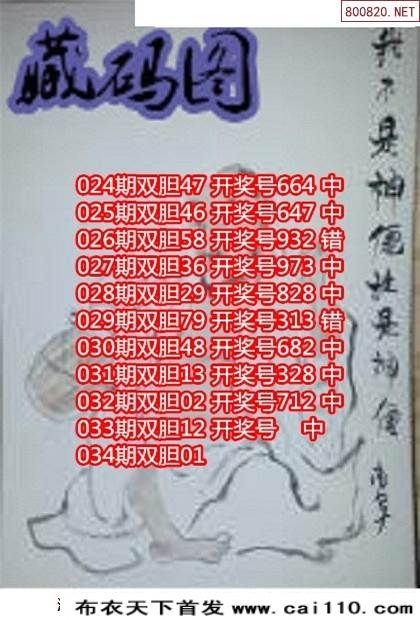 800820.NET
臧码图
我不是神僊谁是神僊
024期双胆47 开奖号664 中
025期双胆46 开奖号647 中
026期双胆58 开奖号932 错
027期双胆36 开奖号973 中
028期双胆29 开奖号828 中
029期双胆79 开奖号313 错
030期双胆48 开奖号682 中
031期双胆13 开奖号328 中
032期双胆02 开奖号712 中
033期双胆12 开奖号 中
034期双胆01
布衣天下首发 www.cai110.com